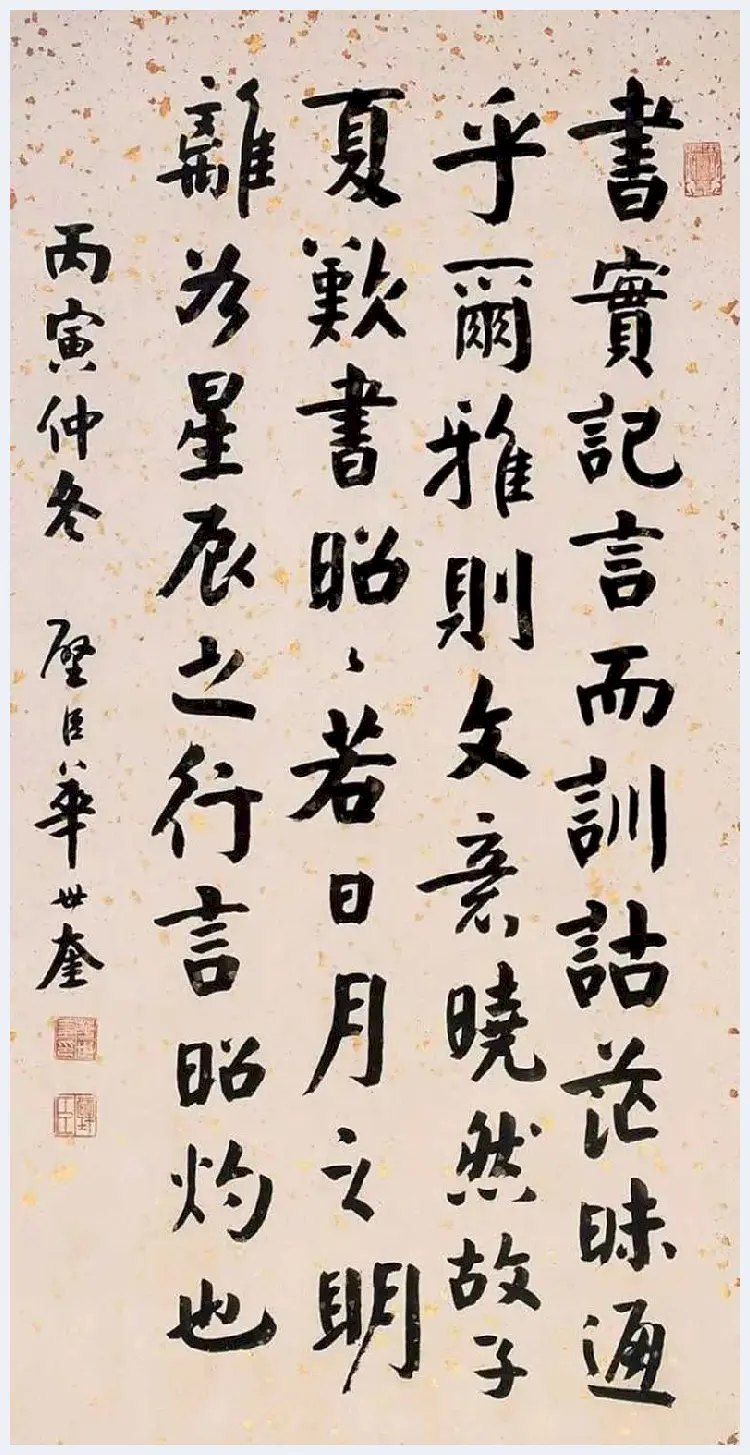 書實記言而訓詁茫昧通
乎爾雅則文意曉然故子
夏歎書昭〻若日月之明
離〻如星辰之行言昭灼也
丙寅仲冬 璧臣華世奎